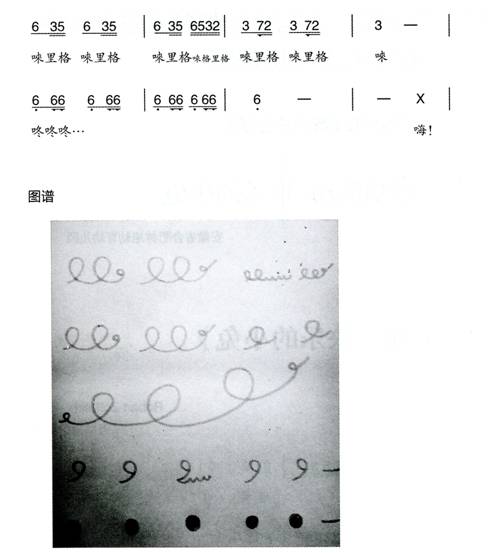 6 35 6 35 | 6 35 6532 | 3 72 3 72 | 3 — |
唻里格 唻里格 唻里格唻格里格 唻里格 唻里格 唻
6 66 6 66 | 6 66 6 66 | 6 — | — X |
咚咚咚… 嗨!
图谱